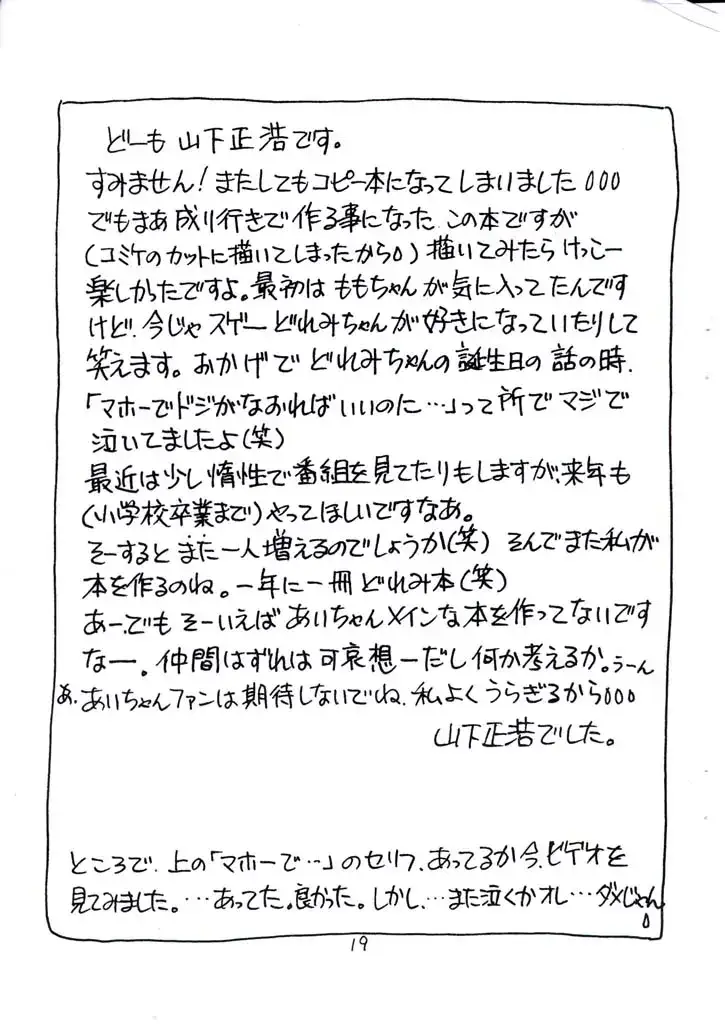 どーも 山下正浩です。
すみません！またしてもコピー本になってしまいました
でもまあ成り行きで作る事になった この本ですが
(コミケのカットに描いてしまったから) 描いてみたら けっこー
楽しかったですよ。最初は ももちゃんが気に入ってたんです
けど、今じゃスゲーどれみちゃんが好きになっていたりして
笑えます。おかげで どれみちゃんの誕生日の話の時、
「マホーでドジがなおればいいのに…」って所でマジで
泣いてましたよ(笑)
最近は少し惰性で番組を見てたりもしますが、来年も
(小学校卒業まで)やってほしいですなあ。
そーすると また一人増えるのでしょうか(笑) そんでまた私が
本を作るのね。一年に一冊どれみ本(笑)
あー、でもそーいえばあいちゃんメインな本を作ってないです
なー。仲間はずれは可哀想ーだし何か考えるか。うーん
あ、あいちゃんファンは期待しないでね、私よくうらぎるから
山下正浩でした。
ところで、上の「マホーで…」のセリフ、あってるか今、ビデオを
見てみました。…あってた。良かった。しかし、…また泣くかオレ…ダメじゃん
19